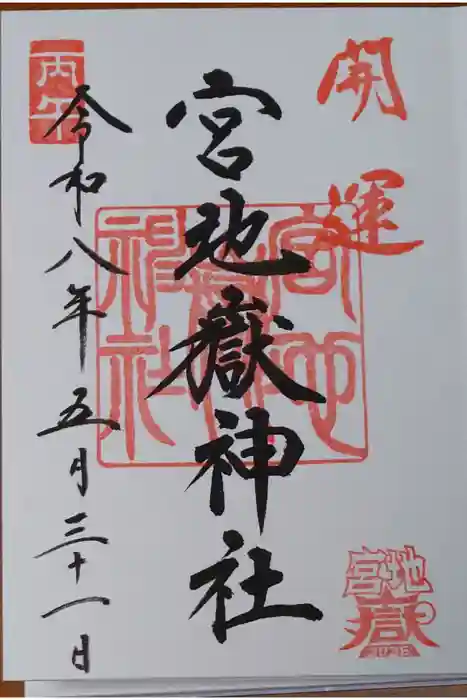 開運
宮地嶽神社
宮地嶽神社
宮地
嶽
丙午
令和八年五月三十一日